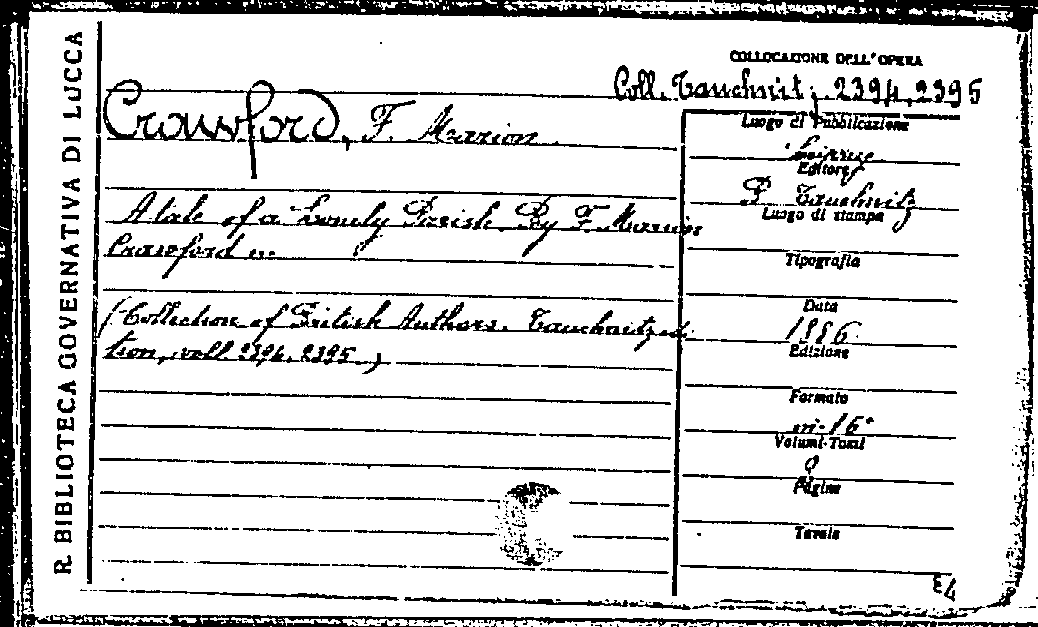 R. BIBLIOTECA GOVERNATIVA DI LUCCA
COLLOCAZIONE DELL'OPERA
Coll. Tauchnitz 2394, 2395
Crawford, F. Marion
A tale of a Lonely Parish. By F. Marion
Crawford ...
(Collection of British Authors. Tauchnitz edi
tion, voll. 2394, 2395.)
Luogo di Pubblicazione
Leipzig
Editore
B. Tauchnitz
Luogo di stampa
Tipografia
Data
1886
Edizione
Formato
in-16°
Volumi-Tomi
Pagine
Tavole